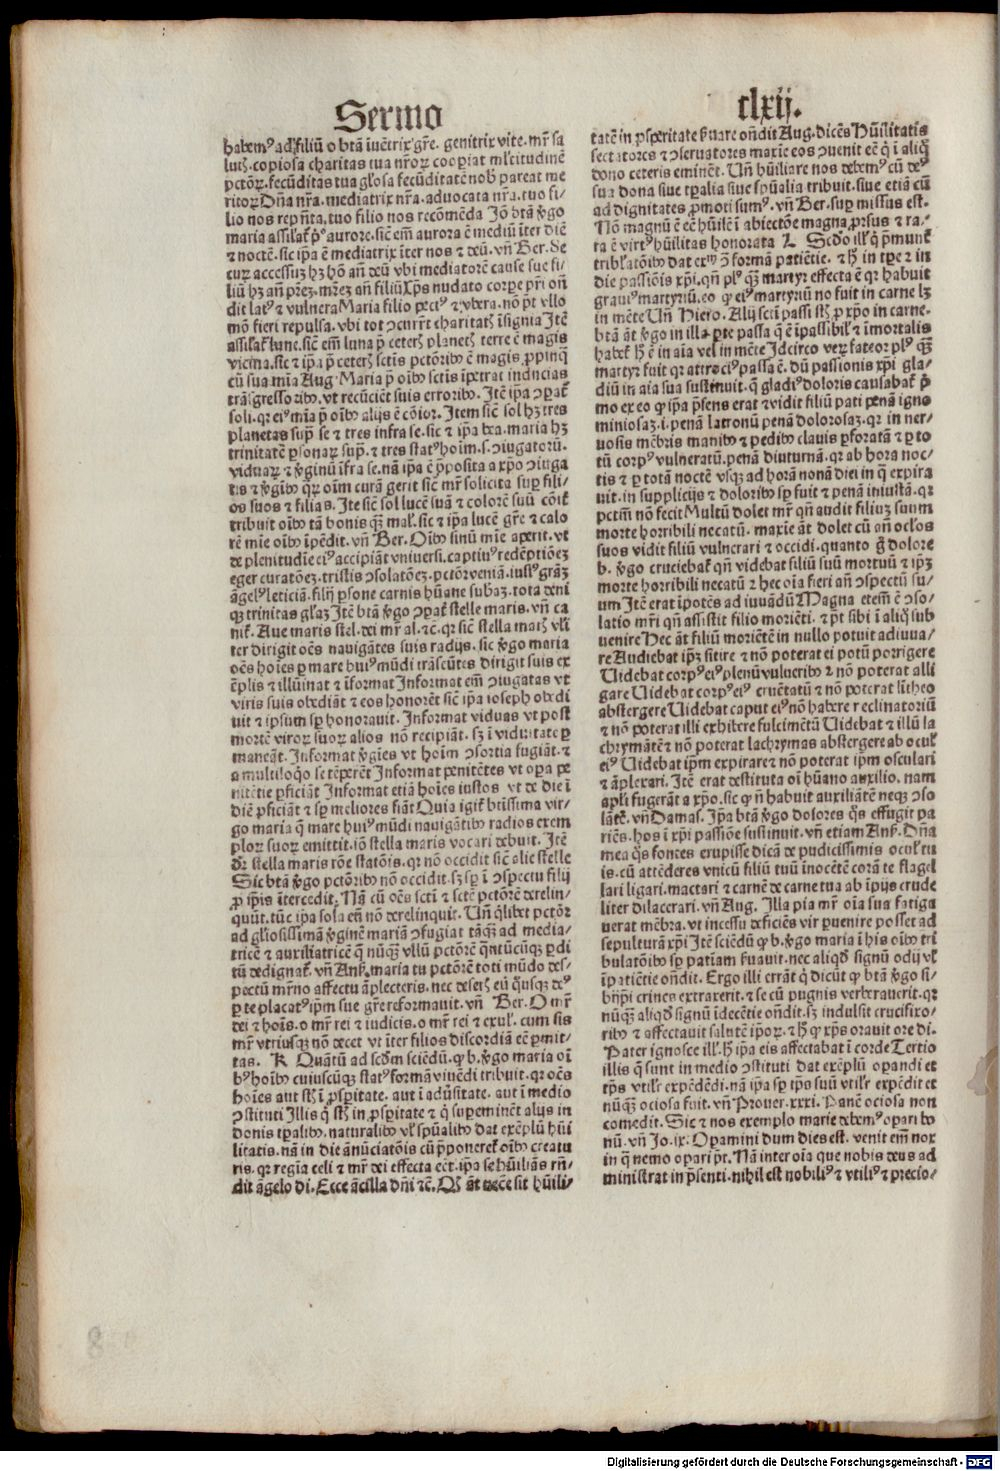 Sermo clxij.
habemꝰ ad filiū o btā īuētrix gr̄e. genitrix vite. mr̄ sa
lutꝭ. copiosa charitas tua nr̄oꝝ coopiat ml̓titudinē
pctōꝝ. fecūditas tua gl̓osa fecūditatē nob̓ pareat me
ritoꝝ Dn̄a nr̄a. mediatrix nr̄a. aduocata nr̄a. tuo fi-
lio nos rep̄nta. tuo filio nos recōmēda Jō btā ꝟgo
maria assilaꝉ p̄ᵒ aurore. sic̄ em̄ aurora ē mediū īter diē
⁊ noctē. sic ip̄a ē mediatrix īter nos ⁊ deū. vn̄ Ber. Se
cuꝝ accessuꝫ hꝫ hō an̄ deū vbi mediatorē cause sue fi-
liū hꝫ an̄ pr̄eꝫ. mr̄eꝫ an̄ filiū xp̄s nudato corꝑe pr̄i on̄
dit latꝰ ⁊ vulnera Maria filio pectꝰ ⁊ vbera. nō p̄t vllo
mō fieri repulsa. vbi tot ↄcurrūt charitatꝭ īsignia Jtē
assilaꝉ lune. sic̄ em̄ luna p̄ ceterꝭ planetꝭ terre ē magis
vicina. sic ⁊ ip̄a p̄ ceterꝭ sctīs pctōribꝰ ē magis ꝓpinq̄
cū sua mīa Aug Maria p̄ oībꝰ sctīs īpetrat inducias
trā̄sgressoribꝰ. vt recūciēt suis erroribꝰ. Jtē ip̄a ↄꝑat̄
soli. qꝛ eiꝰ mīa p̄ oībꝰ alijs ē cōior. Jtem sic̄ sol hꝫ tres
planetas supͣ se ⁊ tres infra se. sic ⁊ ip̄a bta. maria hꝫ
trinitatē ꝑsonaꝝ supͣ. ⁊ tres statꝰ hoīm. s. ↄiugatoꝝ.
viduaꝝ ⁊ ꝟginū īfra se. nā ip̄a ē p̄posita a xp̄o ↄiuga
tis ⁊ ꝟgībꝰ qꝝ oīm curā gerit sic̄ mr̄ solicita suꝑ fili-
os suos ⁊ filias. Jte sic̄ sol lucē suā ⁊ colorē suū cōiꝉ
tribuit oībꝰ tā bonis qꝫ mal̓. sic ⁊ ip̄a lucē gr̄e ⁊ calo
rē mīe oībꝰ īpēdit. vn̄ Ber. Oībꝰ sinū mīe aperit. vt
de plenitudīe eiꝰ accipiāt vniuersi. captiuꝰ redēptiōeꝫ
eger curatōeꝫ. tristis ↄsolatōeꝫ. pctōr veniā. iustꝰ grāꝫ
āgelꝰ leticiā. filij ꝑsone carnis hūane subaꝫ. tota deni
qꝫ trinitas gl̓aꝫ Jtē btā ꝟgo ↄꝑaꝉ stelle maris. vn̄ ca
niꝉ. Aue maris stel. dei mr̄ al. ⁊c. qꝛ sic̄ stella marꝭ vl̓i
ter dirigit oēs nauigātes suis radijs. sic ꝟgo maria
oēs hoīes ꝑ mare huiꝰ mūdi trāseūtes dirigit suis ex
ēplis ⁊ illūinat ⁊ īformat Informat em̄ ↄiugatas vt
viris suis obediāt ⁊ eos honorēt sic̄ ip̄a ioseph obedi
uit ⁊ ipsum sꝑ honorauit. Informat viduas vt post
mortē viroꝝ suoꝝ alios nō recipiāt. sꝫ ī viduitate ꝑ
maneāt. Informat ꝟgīes vt hoīm ↄsortia fugiāt. ⁊
a multiloq̓o se tēperēt Informat penitētes vt oꝑa pe
nitētie ꝑficiāt Informat etiā hoīes iustos vt de die ī
diē ꝑficiāt ⁊ sꝑ meliores fiāt Quia igiꝉ btīssima vir-
go maria q̄ mare huiꝰ mūdi nauigātibꝰ radios exem
ploꝝ suoꝝ emittit. iō stella maris vocari debuit. Jtē
dr̄ stella maris rōe statōis. qꝛ nō occidit sic̄ alie stelle
Sic btā ꝟgo pctōribꝰ nō occidit. sꝫ sꝑ ī ↄspectu filij
ꝓ ip̄is ītercedit. Nā cū oēs sctī ⁊ scte pctorē derelin-
quūt. tūc ip̄a sola eū nō derelinquit. Vn̄ q̓libet pctōr
ad gl̓iosissimā ꝟginē mariā ↄfugiat tāqꝫ ad media-
tricē ⁊ auxiliatricē q̄ nūqꝫ vllū pctōrē q̄ntūcūqꝫ ꝑdi
tū dedignaꝉ. vn̄ Ans. maria tu pctōrē toti mūdo des-
pectū mr̄no affectu āplecteris. nec deserꝭ eū q̄usqꝫ deꝰ
ꝑ te placatꝰ ip̄m sue gr̄e reformauit. vn̄ Ber. O mr̄
dei ⁊ hoīs. o mr̄ rei ⁊ iudicis. o mr̄ rei ⁊ exul̓. cum sis
mr̄ vtriusqꝫ nō decet vt īter filios discordiā eē ꝑmit-
tas. K Quātū ad scdm̄ sciēdū. ꝙ b. ꝟgo maria oī
bꝰ hoībꝰ cuiuscūqꝫ statꝰ formā viuēdi tribuit. qꝛ oēs
hoīes aut sꝉ ī ꝓsꝑitate. aut ī aduſitate. aut ī medio
ↄstituti Jllis q̓ sꝉ in ꝓsꝑitate ⁊ q̓ suꝑeminēt alijs in
donis tꝑalibꝰ. naturalibꝰ vl̓ spūalibꝰ dat exēplū hūi
litatis. nā in die ānūciatōis cū p̄poneretꝉ oībꝰ creatu
ris. qꝛ regīa celi ⁊ mr̄ dei effecta eēt. ip̄a se hūiliās rn̄-
dit āgelo di. Ecce ācilla dn̄i ⁊c. Qd̓ āt decēs sit hūili-
tatē in ꝓsꝑeritate ẜuare on̄dit Aug. dicēs Hūilitatis
sectatores ⁊ ↄseruatores maxīe eos ↄuenit eē q̓ ī aliq̓
dono ceteris eminēt. Vn̄ hūiliare nos debemꝰ cū deꝰ
sua dona siue tꝑalia siue spūalia tribuit. siue etiā cū
ad dignitates ꝓmoti sumꝰ. vn̄ Ber. suꝑ missus est.
Nō magnū ē eē hūilē ī abiectōe magna ꝓrsus ⁊ ra-
ra ē virtꝰ hūilitas honorata L Scdo ill̓ q̓ p̄munꝉ
tribl̓atōibꝰ dat exm̄ ⁊ formā patiētie. ⁊ hꝭ in tꝑe ⁊ in
die passiōis xp̄i. qn̄ plꝰ qꝫ martyr effecta ē qꝛ habuit
grauiꝰ martyriū. eo ꝙ eiꝰ martyriū nō fuit in carne sꝫ
in mēte Vn̄ Hiero. Alij sctī passi sꝉ ꝓ xp̄o in carne.
btā āt ꝟgo in illa ꝑte passa q̄ ē īpassibil̓ ⁊ īmortalis
habeꝉ hꝭ ē in aīa vel in mēte Jdcirco veꝝ fateor plꝰ qꝫ
martyr fuit qꝛ atrociꝰ passa ē. dū passionis xp̄i gla-
diū in aīa sua sustinuit. q̄ gladiꝰ doloris causabaꝉ p̄
mo ex eo ꝙ ip̄a p̄sens erat ⁊ vidit filiū pati penā igno
miniosaꝫ. i. penā latronū penā dolorosaꝫ. qꝛ in ner-
uosis mēbris manibꝰ ⁊ pedibꝰ clauis ꝑforatā ⁊ ꝑ to
tū corpꝰ vulneratū. penā diuturnā. qꝛ ab hora noc-
tis ⁊ ꝑ totā noctē vsqꝫ ad horā nonā diei in q̄ expira
uit. in supplicijs ⁊ doloribꝰ sꝑ fuit ⁊ penā iniustā. qꝛ
pctm̄ nō fecit Multū dolet mr̄ qn̄ audit filiuꝫ suum
morte horribili necatū. maxīe āt dolet cū an̄ ocl̓os
suos vidit filiū vulnerari ⁊ occidi. quanto g̊ dolore
b. ꝟgo cruciebaꝉ qn̄ videbat filiū suū mortuū ⁊ ip̄ꝫ
morte horribili necatū ⁊ hec oīa fieri an̄ ↄspectū su/
um Jtē erat īpotēs ad iuuādū Magna etem̄ ē ↄso-
latio mr̄i qn̄ assistit filio moriēti. ⁊ p̄t sibi ī aliq̓ sub
uenire Hec āt filiū moriētē in nullo potuit adiuua/
re Audiebat ip̄ꝫ sitire ⁊ nō poterat ei potū porrigere
Uidebat corpꝰ eiꝰ plenū vulneribꝰ ⁊ nō poterat alli
gare Uidebat corpꝰ eiꝰ cruētatū ⁊ nō poterat līcheo
abstergere Uidebat caput eiꝰ nō habere reclinatoriū
⁊ nō poterat illi exhibere fulcimētū Uidebat ⁊ illū la
chrymātē ⁊ nō poterat lachrymas abstergere ab ocul̓
eiꝰ Uidebat ip̄m expirare ⁊ nō poterat ip̄m osculari
⁊ āplexari. Jtē erat destituta oī hūano auxilio. nam
apl̓i fugerāt a xp̄o. sic ꝙ n̄ habuit auxiliātē neqꝫ ↄso
lātē. vn̄ Damas. Jp̄a btā ꝟgo dolores q̓s effugit pa
riēs. hos ī xp̄i passiōe sustinuit. vn̄ etiam Ans. Dn̄a
mea q̓s fontes erupisse dicā de pudicissimis ocul̓ tu
is. cū attēderes vnicū filiū tuū īnocētē corā te flagel
lari ligari. mactari ⁊ carnē de carne tua ab īpijs crude
liter dilacerari. vn̄ Aug. Jlla pia mr̄ oīa sua fatiga
uerat mēbra. vt incessu deficiēs vir ꝑuenire posset ad
sepulturā xp̄i Jtē sciēdū ꝙ b. ꝟgo maria ī his oībꝰ tri
bulatōibꝰ sꝑ patīam ẜuauit. nec aliqd̓ signū odij vl̓
īpatiētie on̄dit. Ergo illi errāt q̓ dicūt ꝙ btā ꝟgo si-
bijp̄i crines extraxerit. ⁊ se cū pugnis verberauerit. qꝛ
nūqꝫ aliqd̓ signū īdecētie on̄dit. sꝫ indulsit crucifixo-
ribꝰ ⁊ affectauit salutē ip̄oꝝ. ⁊ hꝭ ꝙ xp̄s orauit ore di.
Pater ignosce ill̓. hꝭ ip̄a eis affectabat ī corde Tertio
illis q̓ sunt in medio ↄstituti dat exēplū oꝑandi et
tꝑs vtil̓r expēdēdi. nā ip̄a sꝑ tꝑs suū vtil̓r expēdit et
nūqꝫ ociosa fuit. vn̄ Prouer. xxxi. Panē ociosa non
comedit. Sic ⁊ nos exemplo marie debemꝰ oꝑari bo
nū. vn̄ Jo. ix. Oꝑamini dum dies est. venit em̄ nox
in q̄ nemo oꝑari p̄t. Nā inter oīa que nobis deus ad
ministrat in p̄senti. nihil est nobiliꝰ ⁊ vtiliꝰ ⁊ precio-
8
Digitalisierung gefördert durch die Deutsche Forschungsgemeinschaft - DFG